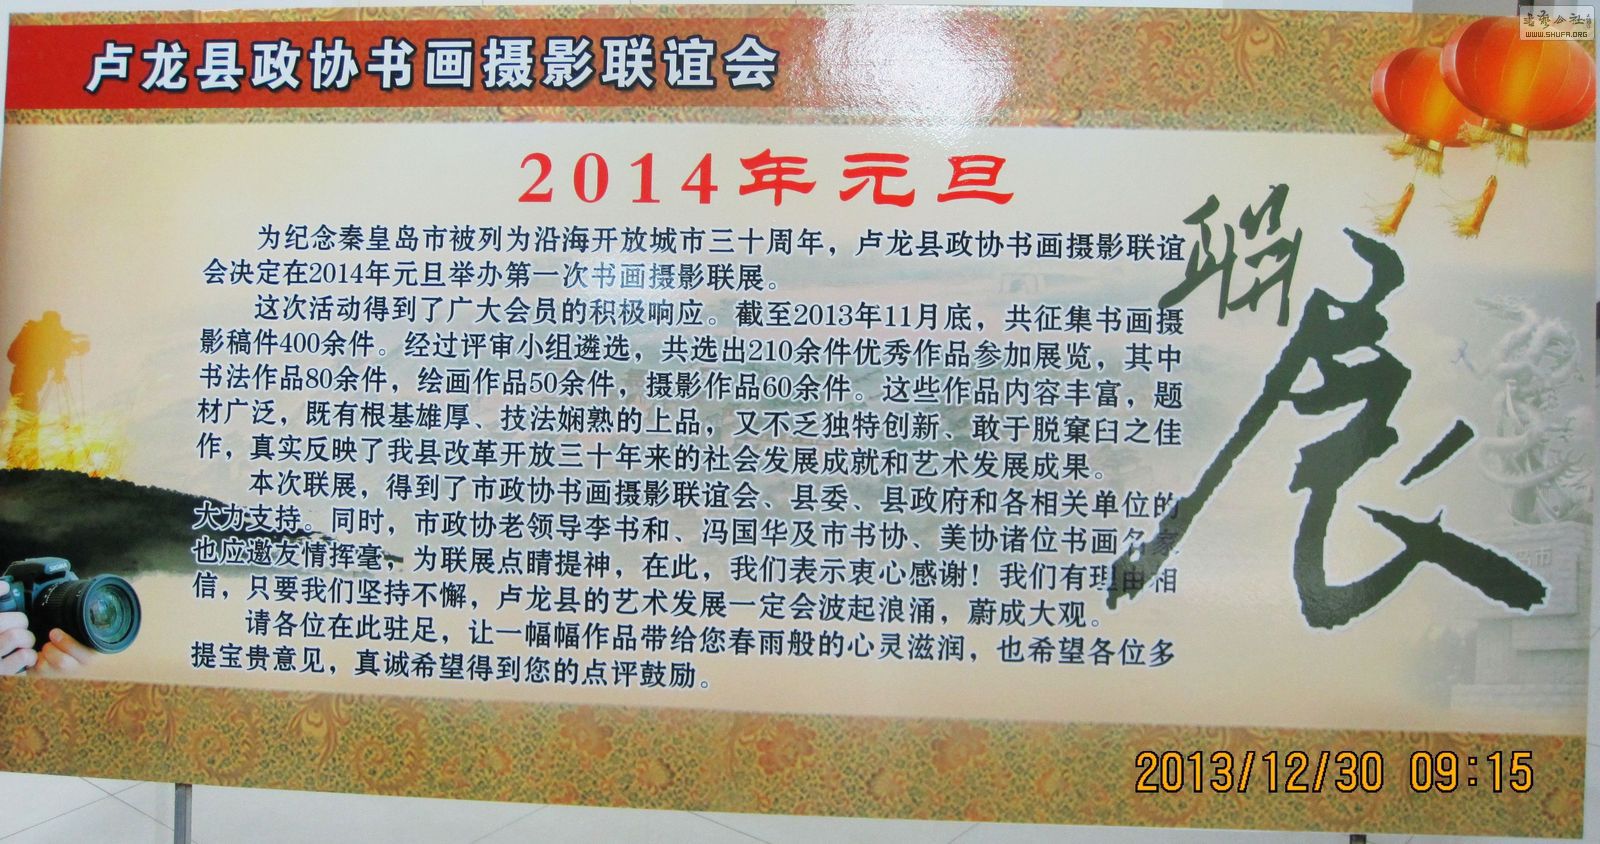 书艺公社
WWW.SHUFA.ORG
卢龙县政协书画摄影联谊会
2014年元旦
联展
为纪念秦皇岛市被列为沿海开放城市三十周年，卢龙县政协书画摄影联谊
会决定在2014年元旦举办第一次书画摄影联展。
这次活动得到了广大会员的积极响应。截至2013年11月底，共征集书画摄
影稿件400余件。经过评审小组遴选，共选出210余件优秀作品参加展览，其中
书法作品80余件，绘画作品50余件，摄影作品60余件。这些作品内容丰富，题
材广泛，既有根基雄厚、技法娴熟的上品，又不乏独特创新、敢于脱窠臼之佳
作，真实反映了我县改革开放三十年来的社会发展成就和艺术发展成果。
本次联展，得到了市政协书画摄影联谊会、县委、县政府和各相关单位的
大力支持。同时，市政协老领导李书和、冯国华及市书协、美协诸位书画名家
也应邀友情挥毫，为联展点睛提神，在此，我们表示衷心感谢！我们有理由相
信，只要我们坚持不懈，卢龙县的艺术发展一定会波起浪涌，蔚成大观。
请各位在此驻足，让一幅幅作品带给您春雨般的心灵滋润，也希望各位多
提宝贵意见，真诚希望得到您的点评鼓励。
SIGMA
2013/12/30 09:15